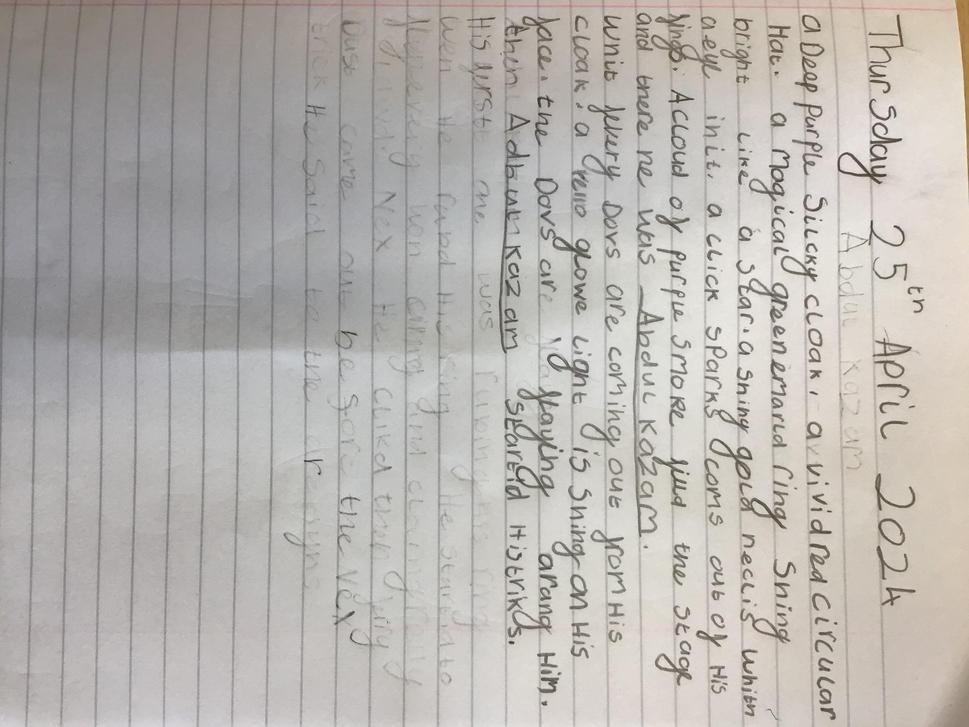 Thursday 25th April 2024
Abdul Kazam
a Deep purple Silcky cloak. a vivid red circular
Hat. a Magical green emarld ring Sning
bright like a star. a sning gold neclis whith
a eye in it. a click sparks coms out of His
fings. A cloud of purple smoke fild the stage
and there he was Abdul kazam.
whit flury Dovs are coming out from His
cloak. a yello glowe light is Sning on His
face. the Dovs are flaying arang Him.
then Adbul kazam started His triks.
His furst one was rubing his ring
wen He rubd His ring He started to
He clikd
Dust came out before the vex
trick He Said to the